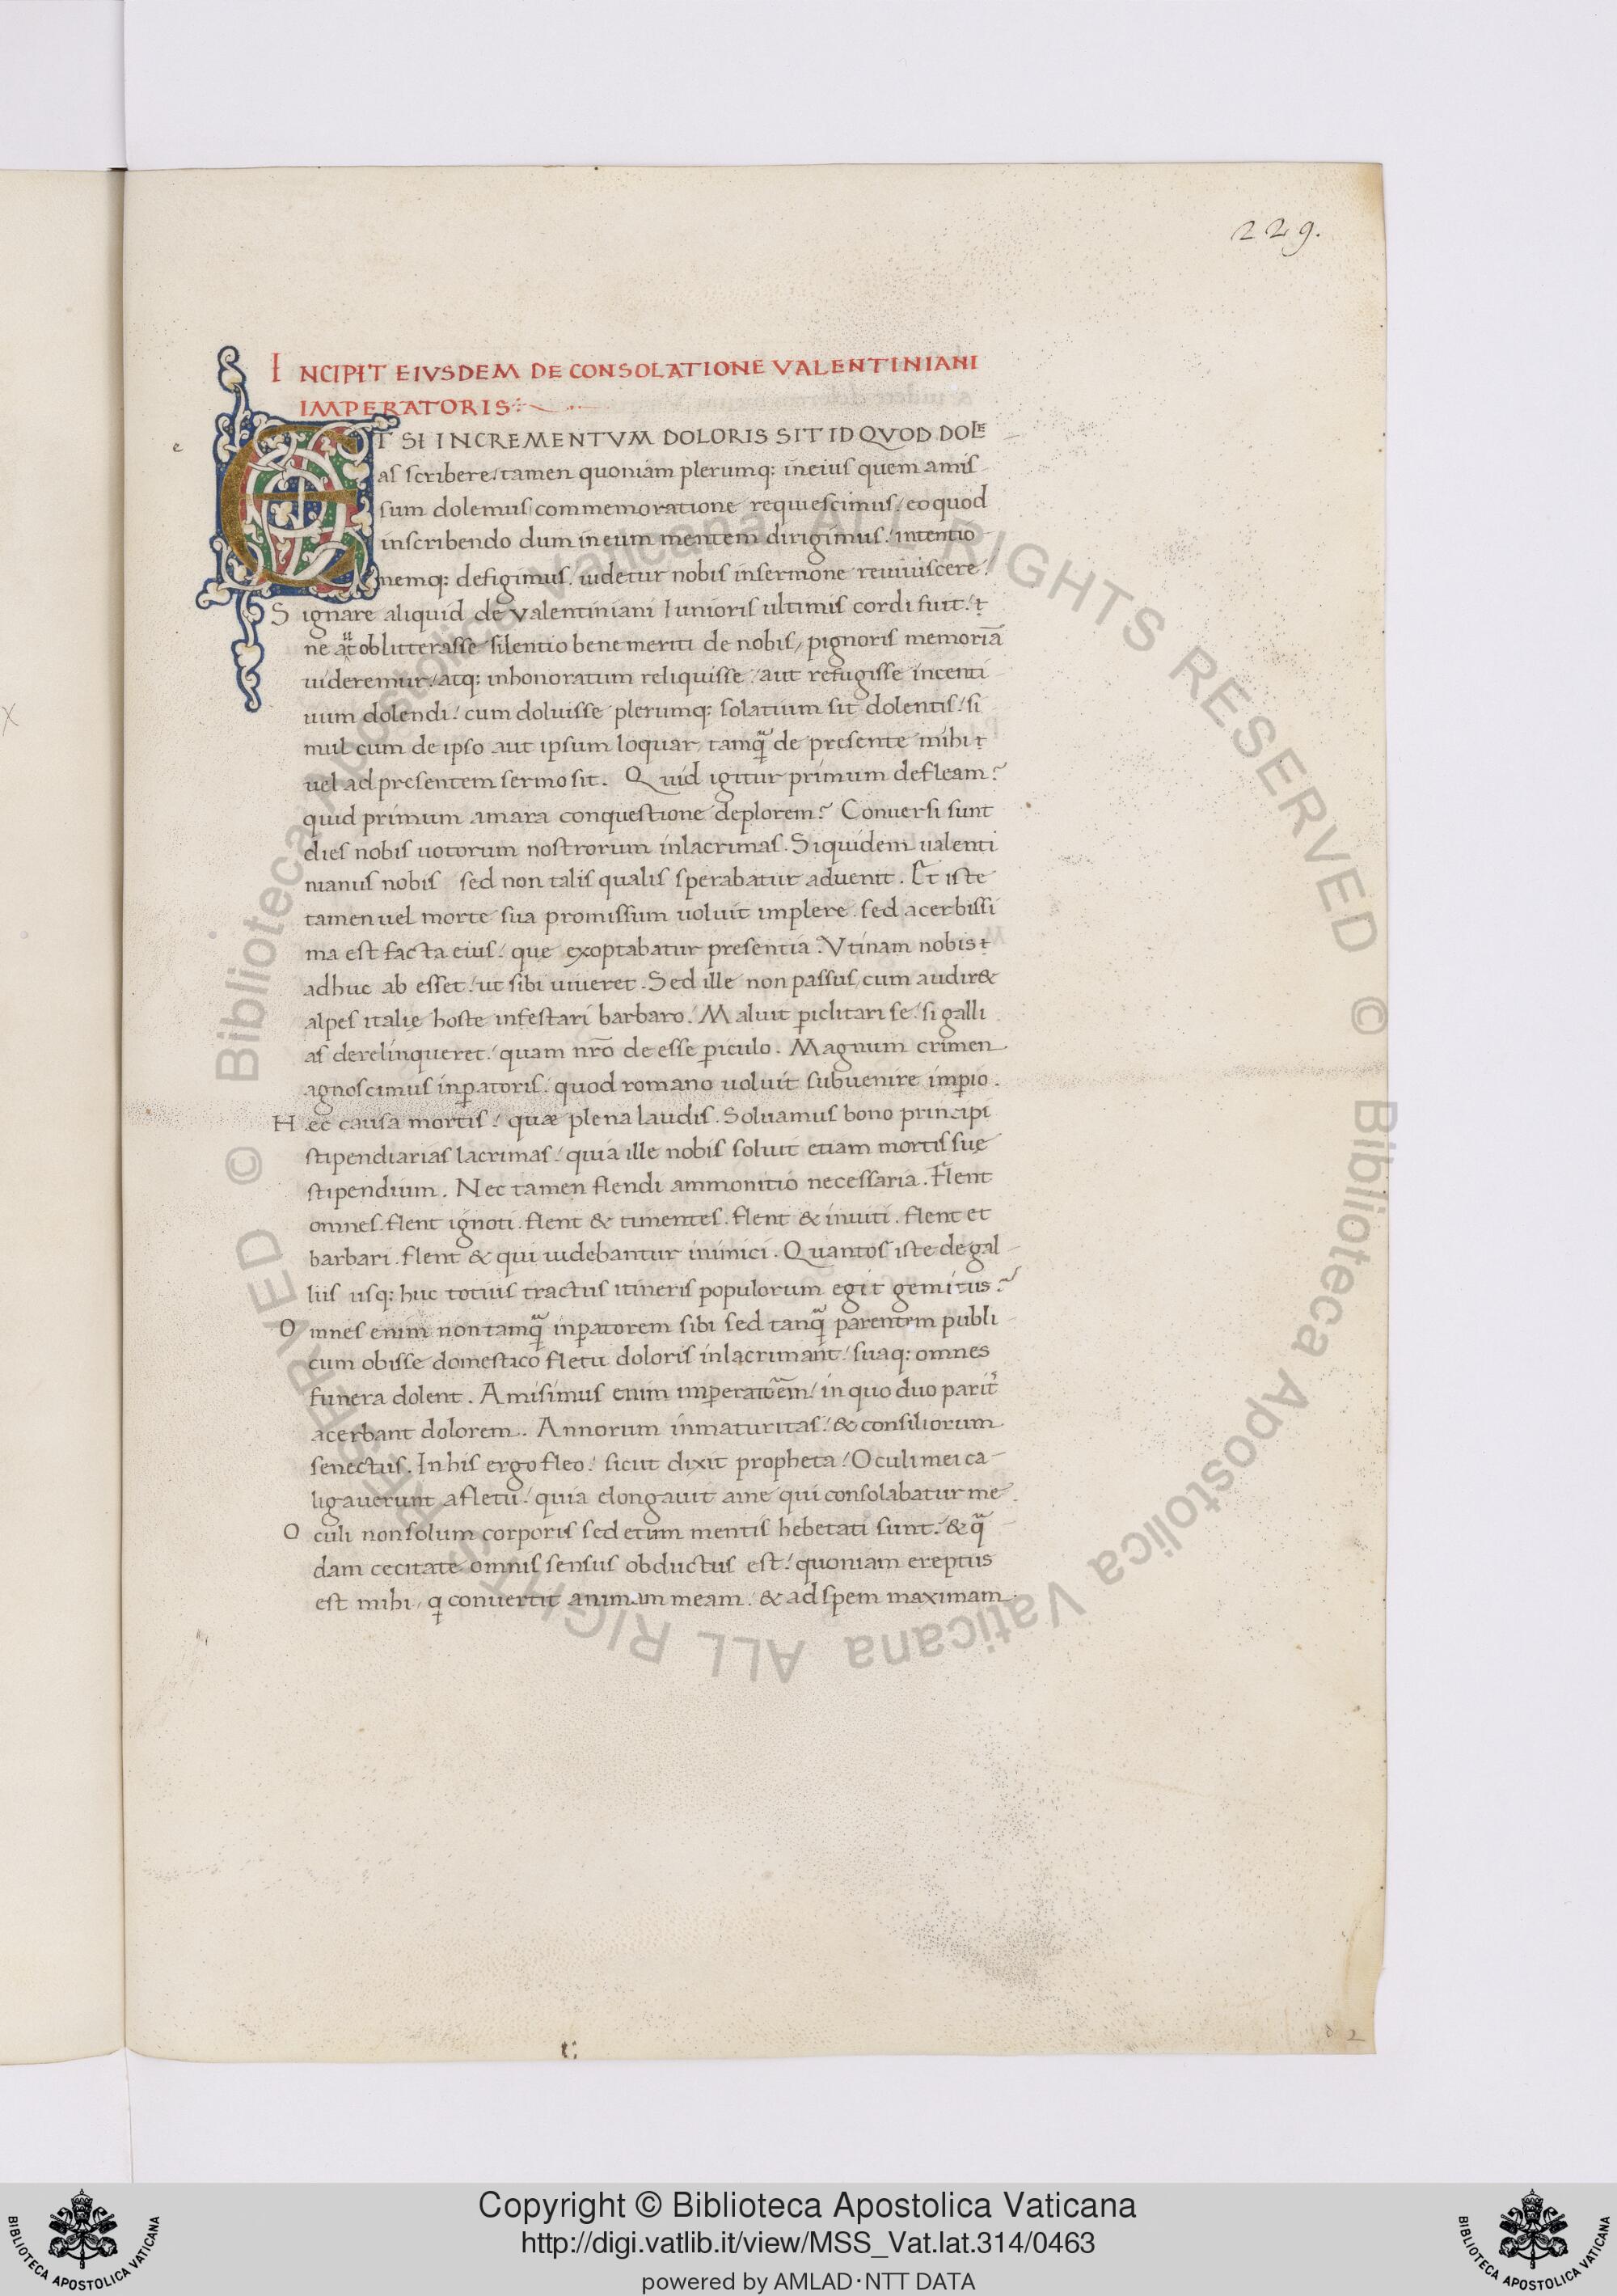 229.
INCIPIT EIVSDEM DE CONSOLATIONE VALENTINIANI
IMPERATORIS:
e
ET SI INCREMENTVM DOLORIS SIT ID QVOD DOLE
as scribere/ tamen quoniam plerumq: ineius quem amis
sum dolemus/ commemoratione requiescimus/ eo quod
inscribendo dum in eum mentem dirigimus/ intentio
nemq: defigimus. uidetur nobis insermone reuiuiscere.
Signare aliquid de Valentiniani Iunioris ultimis cordi fuit/ &
ne aut oblitterasse silentio bene meriti de nobis, pignoris memoriā
uideremur/ atq: inhonoratum reliquisse/ aut refugisse incenti
uum dolendi/ cum doluisse plerumq: solatium sit dolentis/ si
mul cum de ipso aut ipsum loquar tamq̃ de presente mihi
uel ad presentem sermo sit. Quid igitur primum defleam?
quid primum amara conquestione deplorem? Conuersi sunt
dies nobis uotorum nostrorum inlacrimas. Siquidem ualenti
nianus nobis sed non talis qualis sperabatur aduenit. Et iste
tamen uel morte sua promissum uoluit implere. sed acerbissi
ma est facta eius/ que exoptabatur presentia. Vtinam nobis
adhuc ab esset/ ut sibi uiueret. Sed ille non passus, cum audir&
alpes italię hoste infestari barbaro/ Maluit p̱iclitari se/ si galli
as derelinqueret/ quam nr̄o de esse p̱iculo. Magnum crimen
agnoscimus inp̱atoris/ quod romano uoluit subuenire imp̱io.
Hęc causa mortis/ quæ plena laudis. Soluamus bono principi
stipendiarias lacrimas/ quia ille nobis soluit etiam mortis suę
stipendium. Nec tamen flendi ammonitio necessaria. Flent
omnes. flent ignoti. flent & timentes. flent & inuiti. flent et
barbari. flent & qui uidebantur inimici. Quantos iste de gal
liis usq: huc totius tractus itineris populorum egit gemitus?
Omnes enim non tamq̃ inp̱atorem sibi sed tanq̃ parentem publi
cum obisse domestico fletu doloris inlacrimant/ suaq: omnes
funera dolent. Amisimus enim imperatorem/ in quo duo parit̃
acerbant dolorem. Annorum inmaturitas/ & consiliorum
senectus. In his ergo fleo/ sicut dixit propheta/ Oculi mei ca-
ligauerunt a fletu/ quia elongauit ame qui consolabatur me
Oculi non solum corporis sed etiam mentis hebetati sunt/ & q̃
dam cecitate omnis sensus obductus est/ quoniam ereptus
est mihi, q̱ conuertit animam meam/ & ad spem maximam
© Biblioteca Apostolica Vaticana ALL RIGHTS RESERVED
© Biblioteca Apostolica Vaticana ALL RIGHTS RESERVED
Copyright © Biblioteca Apostolica Vaticana
http://digi.vatlib.it/view/MSS_Vat.lat.314/0463
powered by AMLAD·NTT DATA
BIBLIOTECA APOSTOLICA VATICANA
BIBLIOTECA APOSTOLICA VATICANA